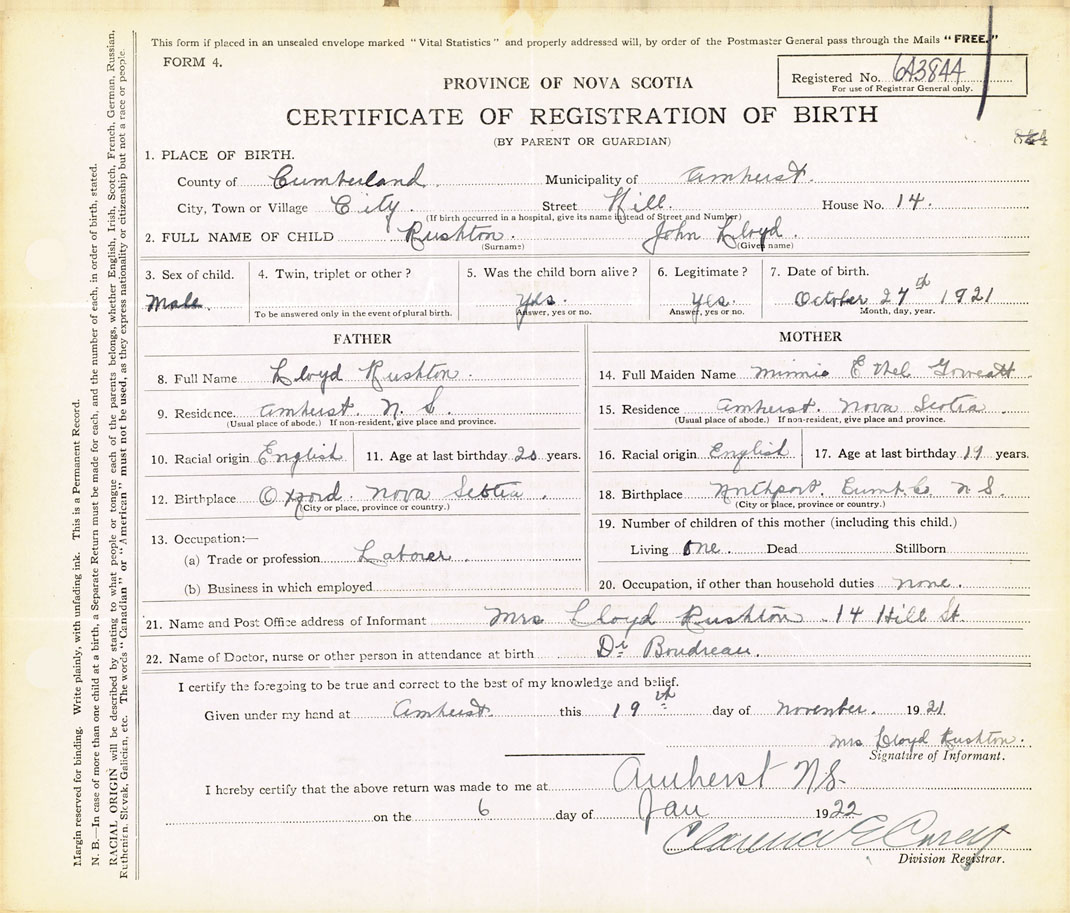 This form if placed in an unsealed envelope marked "Vital Statistics" and properly addressed will, by order of the Postmaster General pass through the Mails "FREE."
FORM 4.
Registered No. 643844
For use of Registrar General only.
PROVINCE OF NOVA SCOTIA
CERTIFICATE OF REGISTRATION OF BIRTH
(BY PARENT OR GUARDIAN)
1. PLACE OF BIRTH.
County of Cumberland Municipality of Amherst.
City, Town or Village City. Street Hill. House No. 14.
(If birth occurred in a hospital, give its name instead of Street and Number)
2. FULL NAME OF CHILD Rushton. John Lloyd.
(Surname) (Given name)
3. Sex of child. 4. Twin, triplet or other? 5. Was the child born alive? 6. Legitimate? 7. Date of birth.
Male. Yes. Yes. October 27th 1921
To be answered only in the event of plural birth. Answer, yes or no. Answer, yes or no. Month, day, year.
FATHER
8. Full Name Lloyd Rushton.
9. Residence. Amherst. N. S.
(Usual place of abode.) If non-resident, give place and province.
10. Racial origin English 11. Age at last birthday 20 years.
12. Birthplace Oxford. Nova Scotia.
(City or place, province or country.)
13. Occupation:—
(a) Trade or profession Laborer
(b) Business in which employed
MOTHER
14. Full Maiden Name Minnie Ethel
15. Residence Amherst. Nova Scotia
(Usual place of abode.) If non-resident, give place and province.
16. Racial origin English 17. Age at last birthday years.
18. Birthplace Northport. Cumb. Co. N S.
(City or place, province or country.)
19. Number of children of this mother (including this child.)
Living One. Dead Stillborn
20. Occupation, if other than household duties none.
21. Name and Post Office address of Informant Mrs Lloyd Rushton. 14 Hill St.
22. Name of Doctor, nurse or other person in attendance at birth Dr Boudreau.
I certify the foregoing to be true and correct to the best of my knowledge and belief.
Given under my hand at Amherst. this 19th day of November. 1921
Mrs Lloyd Rushton.
Signature of Informant.
I hereby certify that the above return was made to me at Amherst N.S.
on the 6 day of Jan 1922
Clarence E
Division Registrar.
Margin reserved for binding. Write plainly, with unfading ink. This is a Permanent Record.
N. B.—In case of more than one child at a birth, a Separate Return must be made for each, and the number of each, in order of birth, stated.
RACIAL ORIGIN will be described by stating to what people or tongue each of the parents belongs, whether English, Irish, Scotch, French, German, Russian,
Ruthenian, Slovak, Galician, etc. The words "Canadian" or "American" must not be used, as they express nationality or citizenship but not a race or people.